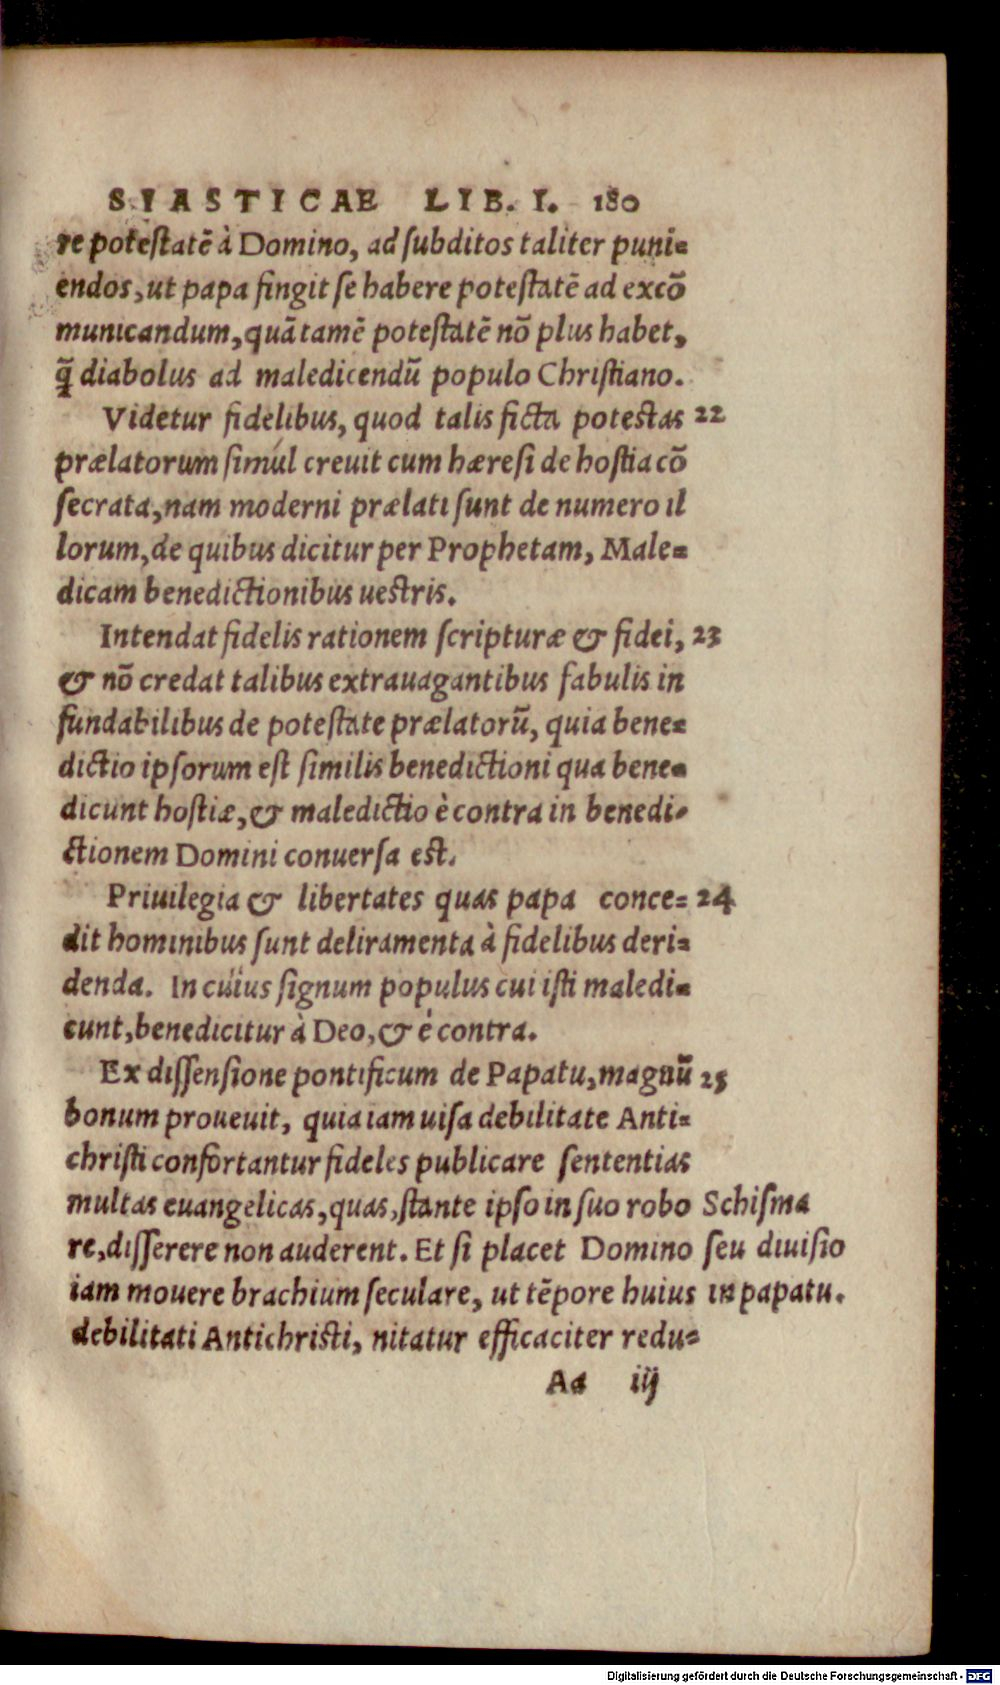 SIASTICAE LIB. I. 180
re potestatē à Domino, ad subditos taliter puni=
endos, ut papa fingit se habere potestatē ad excō
municandum, quā tamē potestatē nō plus habet,
q̄ diabolus ad maledicendū populo Christiano.
Videtur fidelibus, quod talis ficta potestas 22
prælatorum simul creuit cum hæresi de hostia cō
secrata, nam moderni prælati sunt de numero il
lorum, de quibus dicitur per Prophetam, Male=
dicam benedictionibus uestris.
Intendat fidelis rationem scripturæ & fidei, 23
& nō credat talibus extrauagantibus fabulis in
fundabilibus de potestate prælatorū, quia bene=
dictio ipsorum est similis benedictioni qua bene=
dicunt hostiæ, & maledictio è contra in benedi=
ctionem Domini conuersa est.
Priuilegia & libertates quas papa conce= 24
dit hominibus sunt deliramenta à fidelibus deri=
denda. In cuius signum populus cui isti maledi=
cunt, benedicitur à Deo, & è contra.
Ex dissensione pontificum de Papatu, magnū 25
bonum proueuit, quia iam uisa debilitate Anti=
christi confortantur fideles publicare sententias
multas euangelicas, quas, stante ipso in suo robo Schisma
re, disserere non auderent. Et si placet Domino seu diuisio
iam mouere brachium seculare, ut tēpore huius in papatu.
debilitati Antichristi, nitatur efficaciter redu=
Aa iij
Digitalisierung gefördert durch die Deutsche Forschungsgemeinschaft - DFG